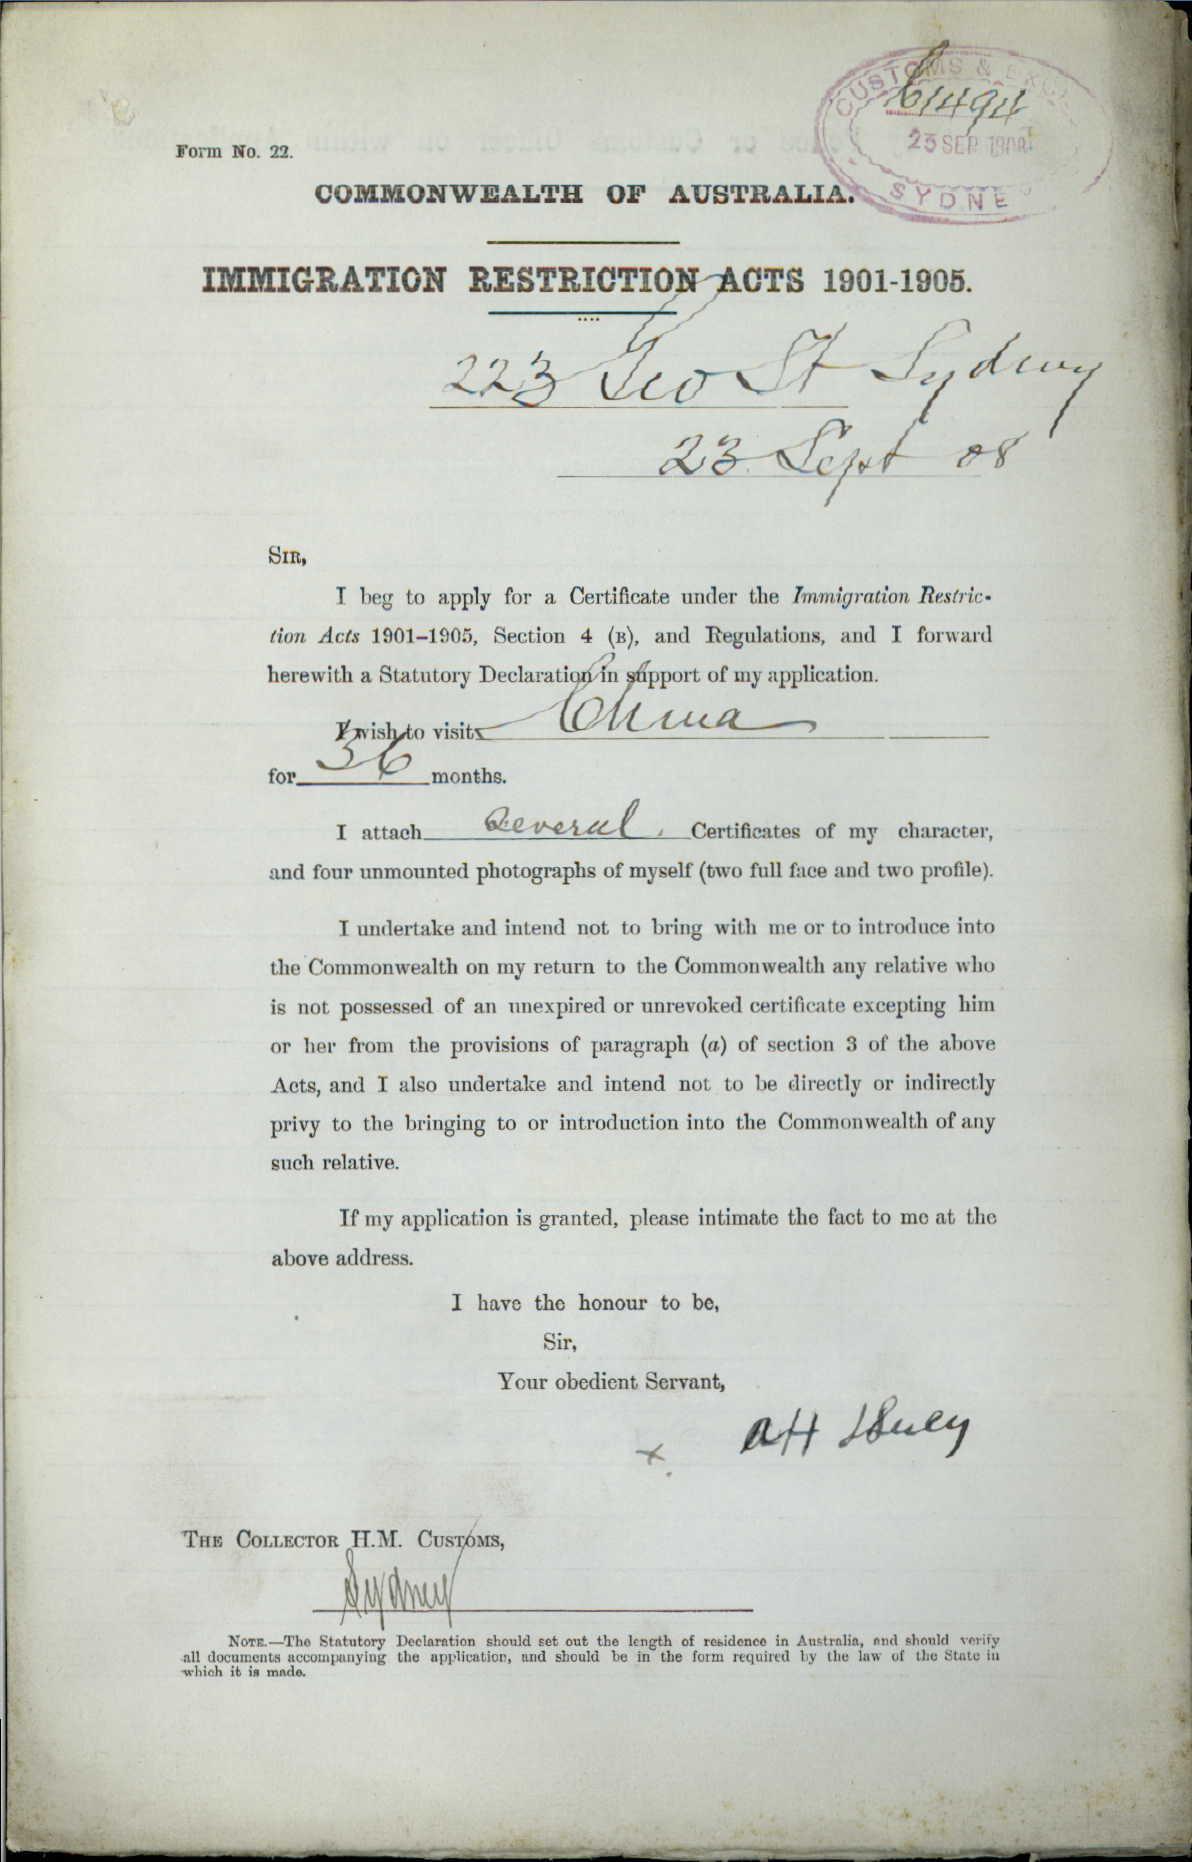 CUSTOMS & EXCI
23 SEP 1908
SYDNE
Form No. 22.
COMMONWEALTH OF AUSTRALIA.
IMMIGRATION RESTRICTION ACTS 1901-1905.
223 Geo St Sydney
23 Sept 08
SIR,
I beg to apply for a Certificate under the Immigration Restric-
tion Acts 1901–1905, Section 4 (B), and Regulations, and I forward
herewith a Statutory Declaration in support of my application.
I wish to visit China
for 36 months.
I attach Several Certificates of my character,
and four unmounted photographs of myself (two full face and two profile).
I undertake and intend not to bring with me or to introduce into
the Commonwealth on my return to the Commonwealth any relative who
is not possessed of an unexpired or unrevoked certificate excepting him
or her from the provisions of paragraph (a) of section 3 of the above
Acts, and I also undertake and intend not to be directly or indirectly
privy to the bringing to or introduction into the Commonwealth of any
such relative.
If my application is granted, please intimate the fact to me at the
above address.
I have the honour to be,
Sir,
Your obedient Servant,
x AH
THE COLLECTOR H.M. CUSTOMS,
Sydney
NOTE.—The Statutory Declaration should set out the length of residence in Australia, and should verify
all documents accompanying the application, and should be in the form required by the law of the State in
which it is made.